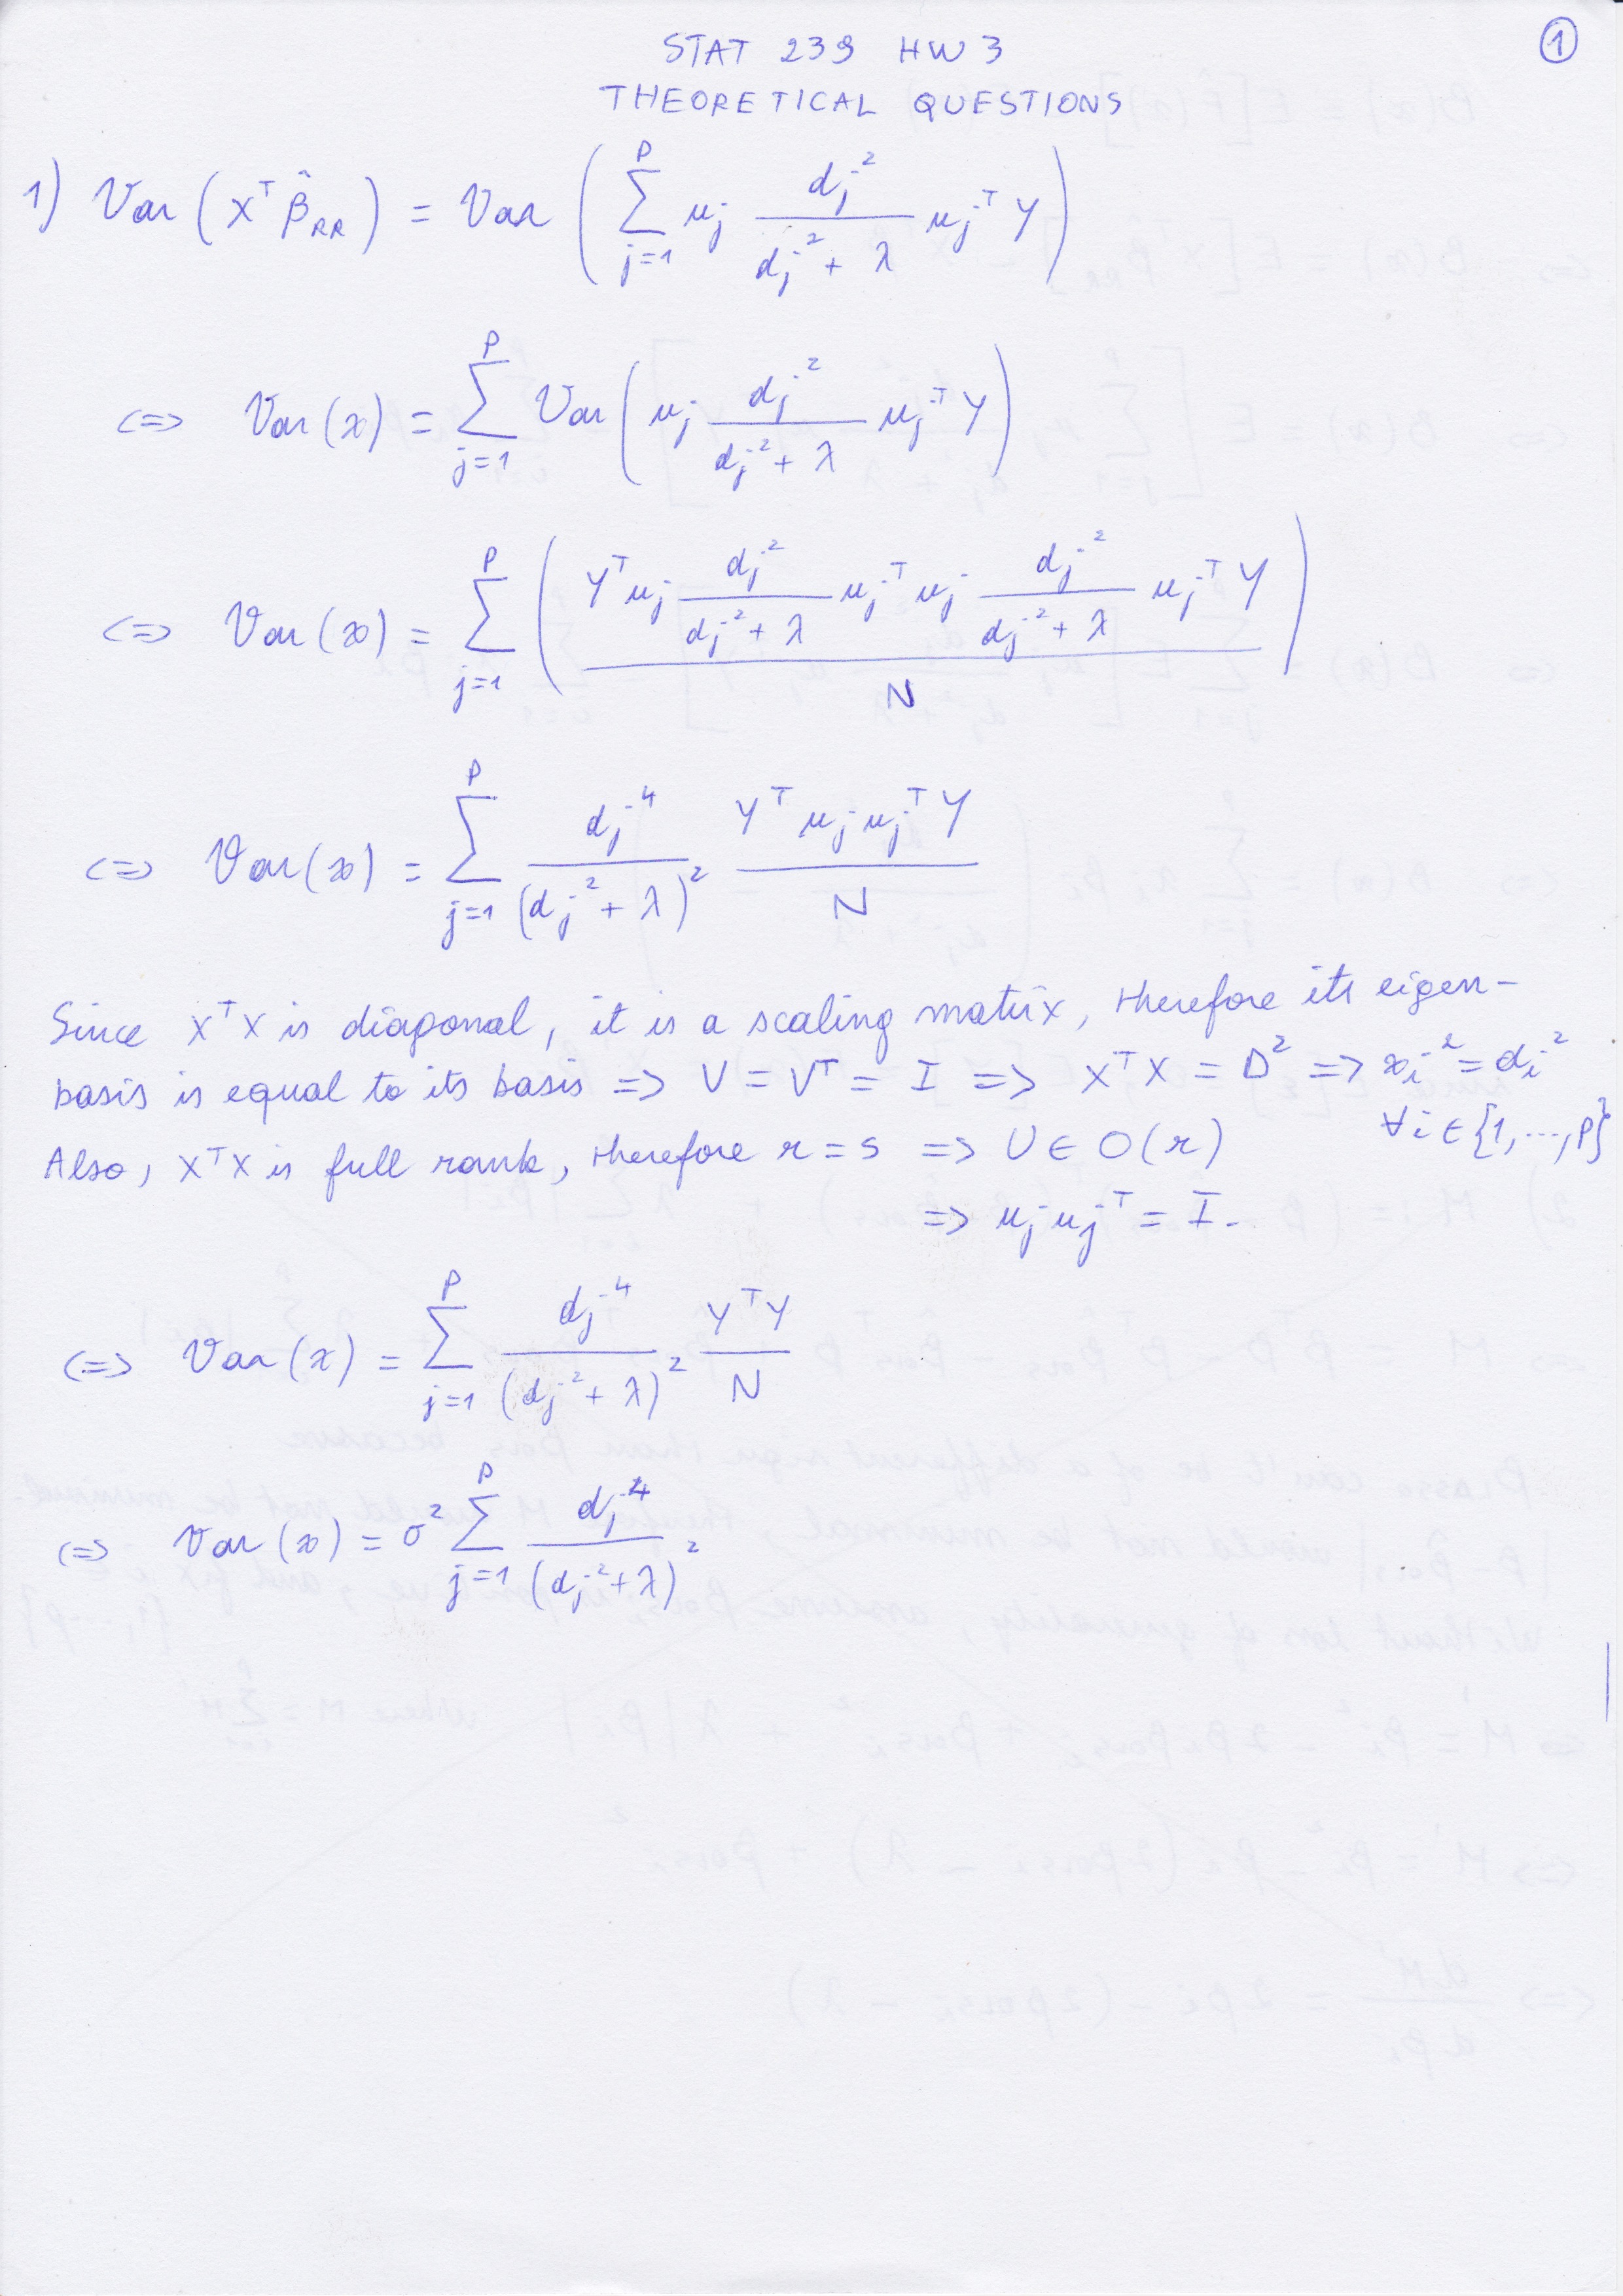 ①
STAT 239 HW 3
THEORETICAL QUESTIONS
1) Var(X^T β̂_RR) = Var( Σ_{j=1}^{p} u_j d_j^2/(d_j^2 + λ) u_j^T Y )
<=> Var(x) = Σ_{j=1}^{p} Var( u_j d_j^2/(d_j^2 + λ) u_j^T Y )
<=> Var(x) = Σ_{j=1}^{p} ( Y^T u_j d_j^2/(d_j^2 + λ) u_j^T u_j d_j^2/(d_j^2 + λ) u_j^T Y / N )
<=> Var(x) = Σ_{j=1}^{p} d_j^4/(d_j^2 + λ)^2 Y^T u_j u_j^T Y / N
Since X^T X is diagonal, it is a scaling matrix, therefore its eigen-
basis is equal to its basis => V = V^T = I => X^T X = D^2 => x_i^2 = d_i^2
∀i ∈ {1, ..., p}
Also, X^T X is full rank, therefore r = s => U ∈ O(r)
=> u_j u_j^T = I.
<=> Var(x) = Σ_{j=1}^{p} d_j^4/(d_j^2 + λ)^2 Y^T Y / N
<=> Var(x) = σ^2 Σ_{j=1}^{p} d_j^4/(d_j^2 + λ)^2